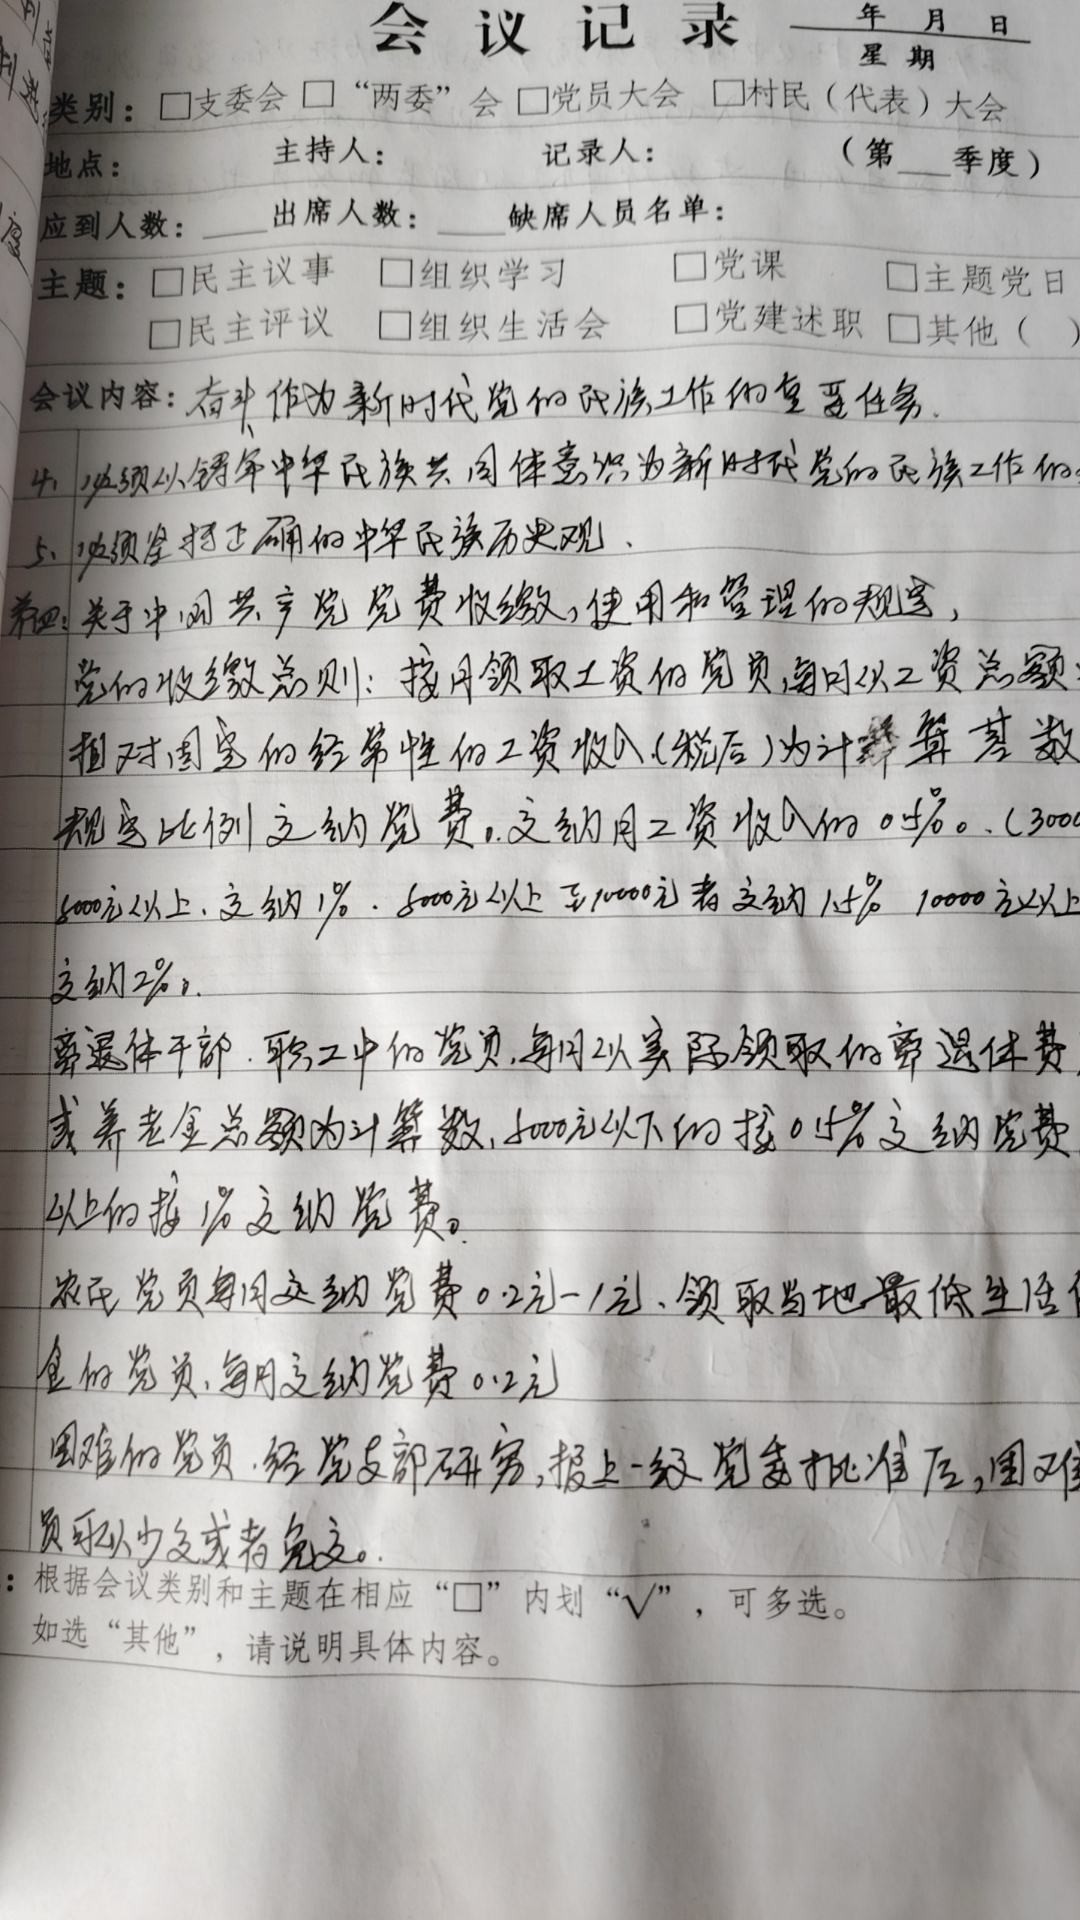 会议记录 年 月 日
星期
类别：□支委会 □“两委”会 □党员大会 □村民（代表）大会
地点： 主持人： 记录人： （第 季度）
应到人数： 出席人数： 缺席人员名单：
主题：□民主议事 □组织学习 □党课 □主题党日
□民主评议 □组织生活会 □党建述职 □其他（ ）
会议内容：奋斗作为新时代党的民族工作的重要任务．
4、必须以铸牢中华民族共同体意识为新时代党的民族工作的
5、必须坚持正确的中华民族历史观．
第四：关于中国共产党党费收缴，使用和管理的规定，
党的收缴总则：按月领取工资的党员，每月以工资总额
相对固定的经常性的工资收入（税后）为计算基数
规定比例交纳党费。交纳月工资收入的0.5%。（3000
5000元以上、交纳1%．5000元以上至10000元者交纳1.5% 10000元以上
交纳2%。
离退休干部．职工中的党员，每月以实际领取的离退休费
或养老金总额为计算数，5000元以下的按0.5%交纳党费
以上的按1%交纳党费。
农民党员每月交纳党费0.2元-1元、领取当地最低生活
金的党员、每月交纳党费0.2元
困难的党员．经党支部研究，报上一级党委批准后，困难
员可以少交或者免交。
：根据会议类别和主题在相应“□”内划“√”，可多选。
如选“其他”，请说明具体内容。